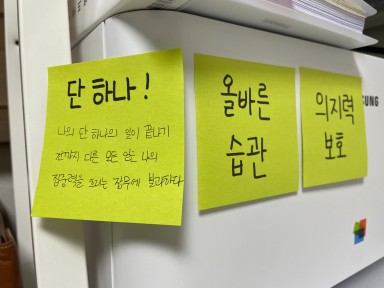 단 하나!
나의 단 하나의 일이 끝나기
전까지 다른 모든 일은 나의
집중력을 흐리는 잡무에 불과하다
올바른
습관
의지력
보호
SUNG